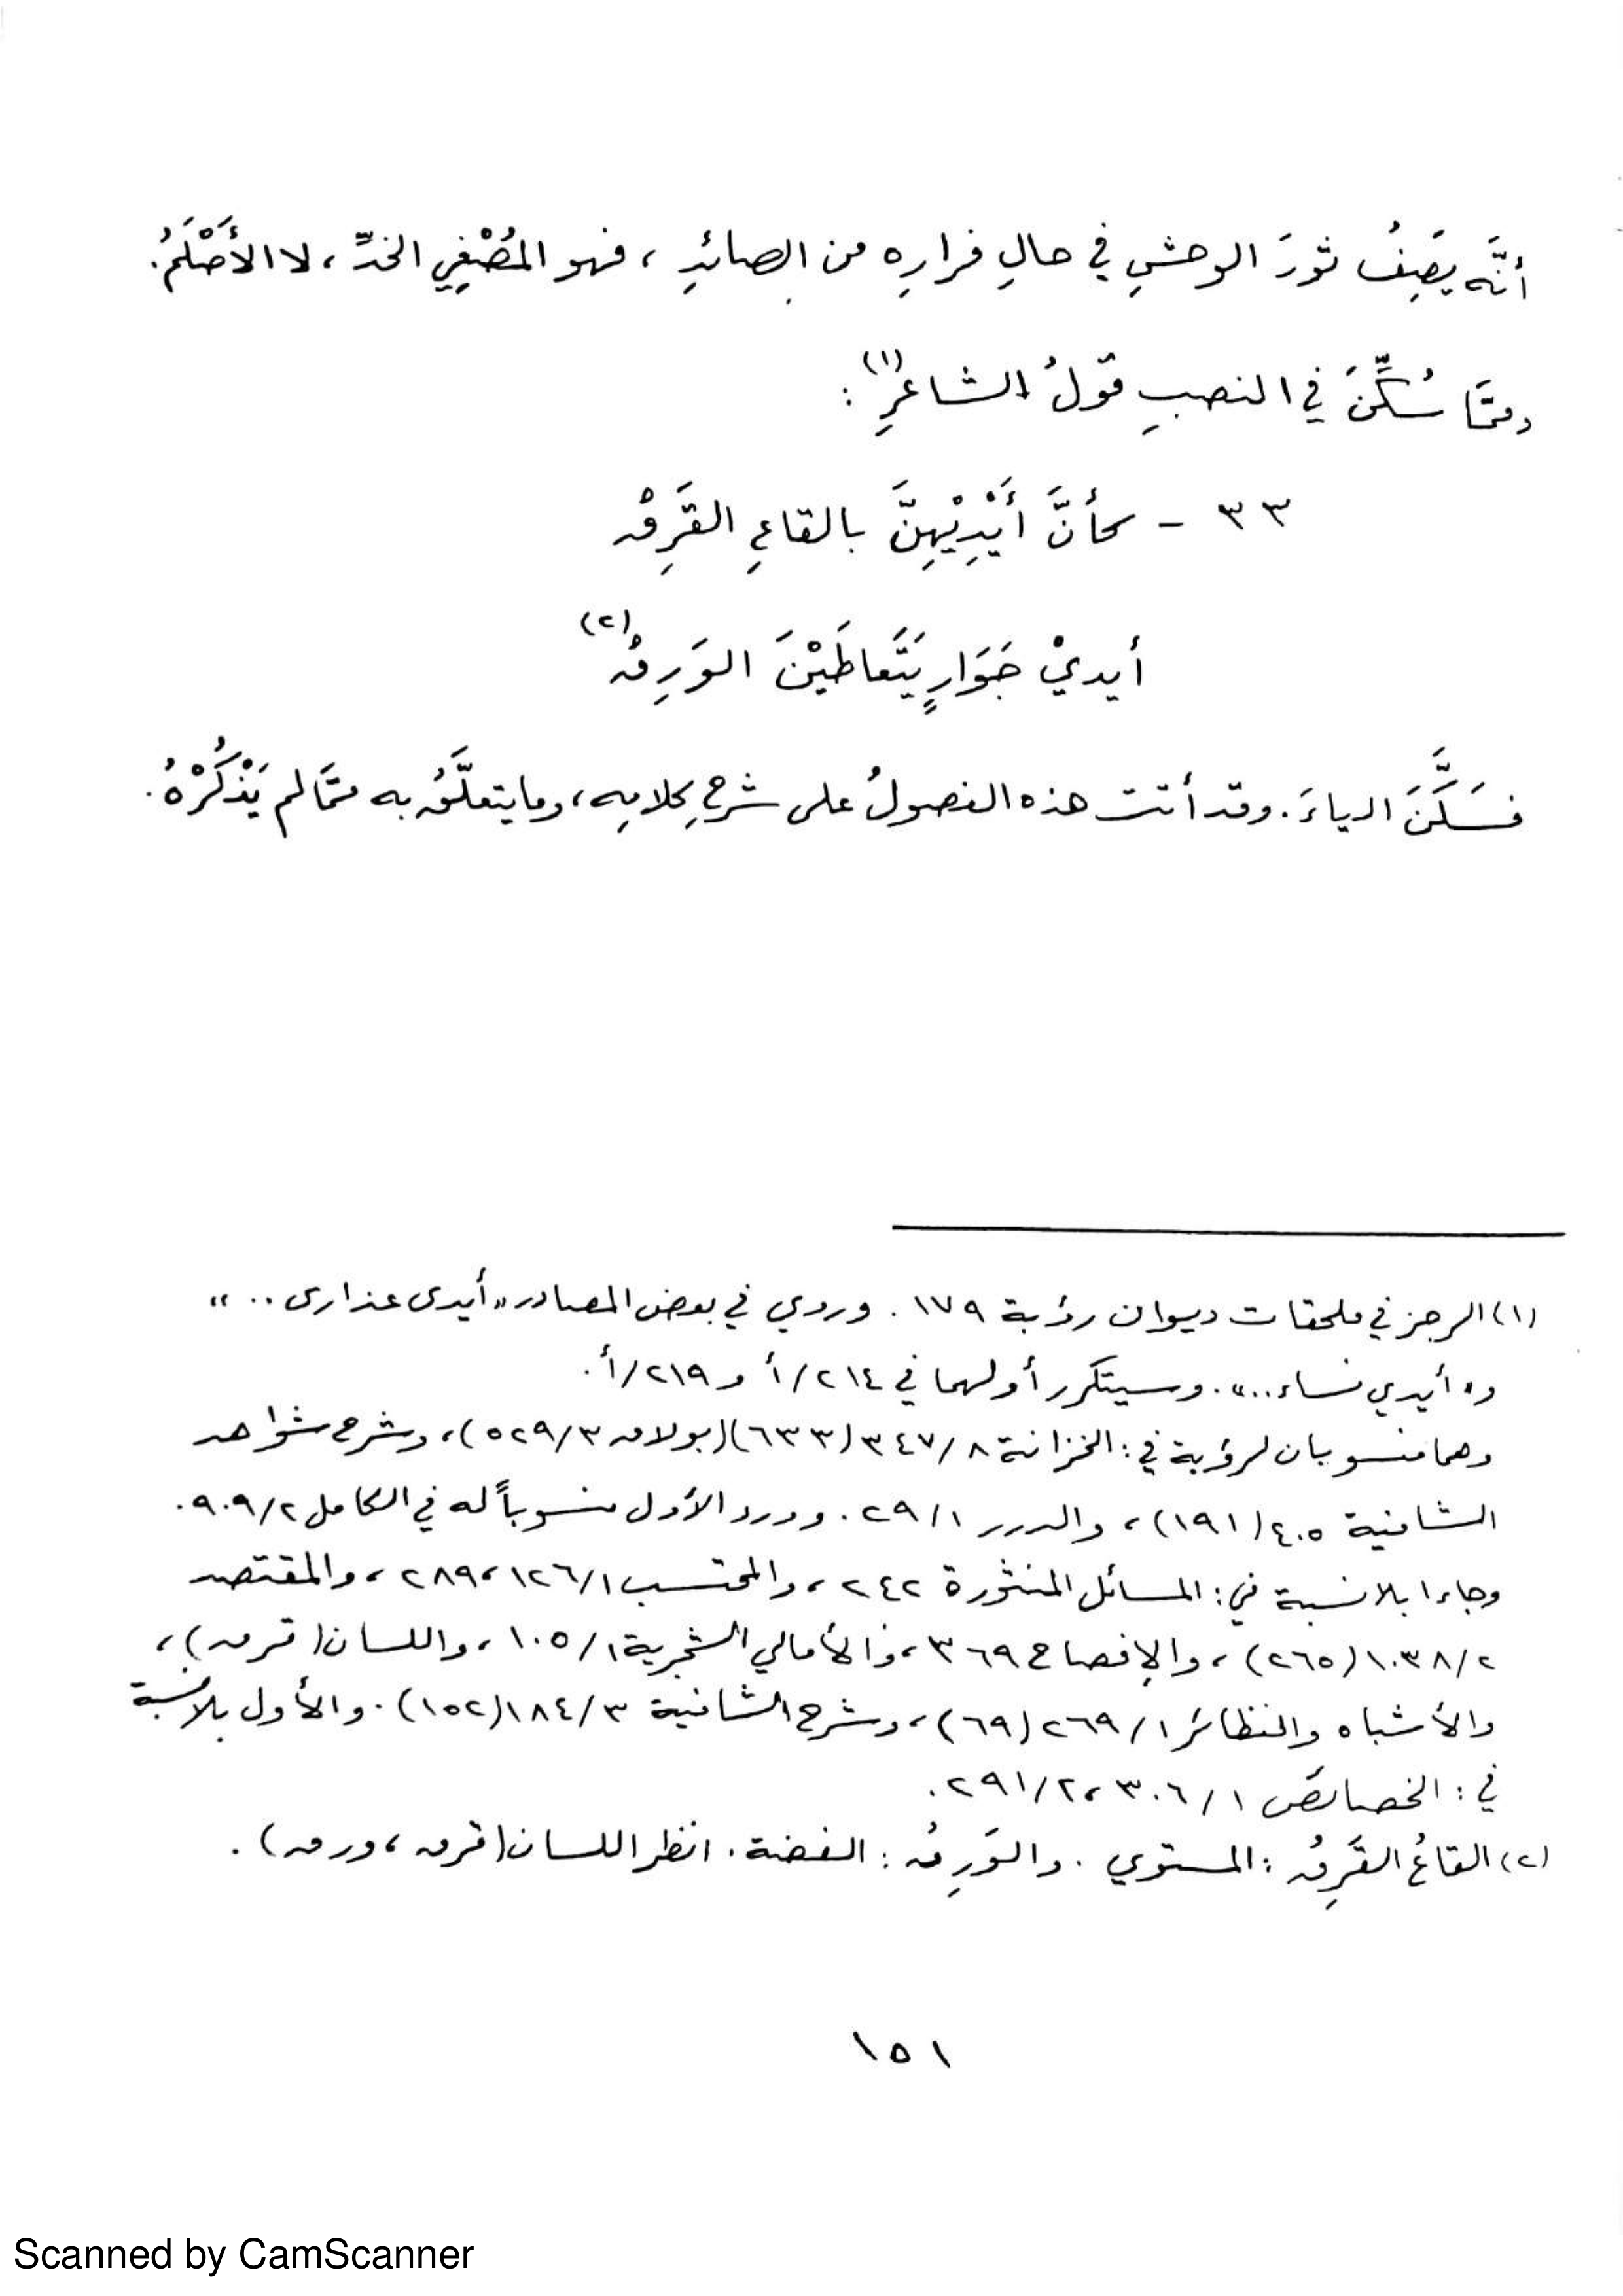 أنَّه يَصِفُ ثورَ الوحشِ في حالِ فرارِه من الصائدِ ، فهو المُصْغِي الخدِّ ، لا الأَصْلَمُ.
ومما سُكِّنَ في النصبِ قولُ الشاعرِ(١) :
٣٣ - كأنَّ أَيْدِيْهِنَّ بالقاعِ القَرِقْ
أيديْ جَوَارٍ يَتَعاطَيْنَ الوَرِقْ(٢)
فسَكَّنَ الياءَ . وقد أتت هذه الفصولُ على شرحِ كلامِه ، وما يتعلَّقُ به ممَّا لم يَذْكُرْهُ .
(١) الرجز في ملحقات ديوان رؤبة ١٧٩ . وروي في بعض المصادر «أيدى عذارى .. »
و« أيدي نساء ..» . وسيتكرر أولهما في ٢١٤/أ و ٢١٩/أ .
وهما منسوبان لرؤبة في : الخزانة ٣٤٧/٨ (٦٣٣) (بولاق ٥٢٩/٣) ، وشرح شواهد
الشافية ٤٠٥ (١٩١) ، والدرر ٢٩/١ . وورد الأول منسوباً له في الكامل ٩٠٩/٢ .
وجاءا بلا نسبة في : المسائل المنثورة ٢٤٢ ، والمحتسب ١٢٦/١ ، ٢٨٩ ، والمقتصد
١٠٣٨/٢ (٢٦٥) ، والإفصاح ٣٦٩ ، والأمالي الشجرية ١٠٥/١ ، واللسان (قرق) ،
والأشباه والنظائر ٢٦٩/١ (٦٩) ، وشرح الشافية ١٨٤/٣ (١٥٢) . والأول بلا نسبة
في : الخصائص ٣٠٦/١ ، ٢٩١/٢ .
(٢) القاعُ القَرِقُ : المستوي . والوَرِقُ : الفضة . انظر اللسان (قرق ، ورق) .
١٥١
Scanned by CamScanner